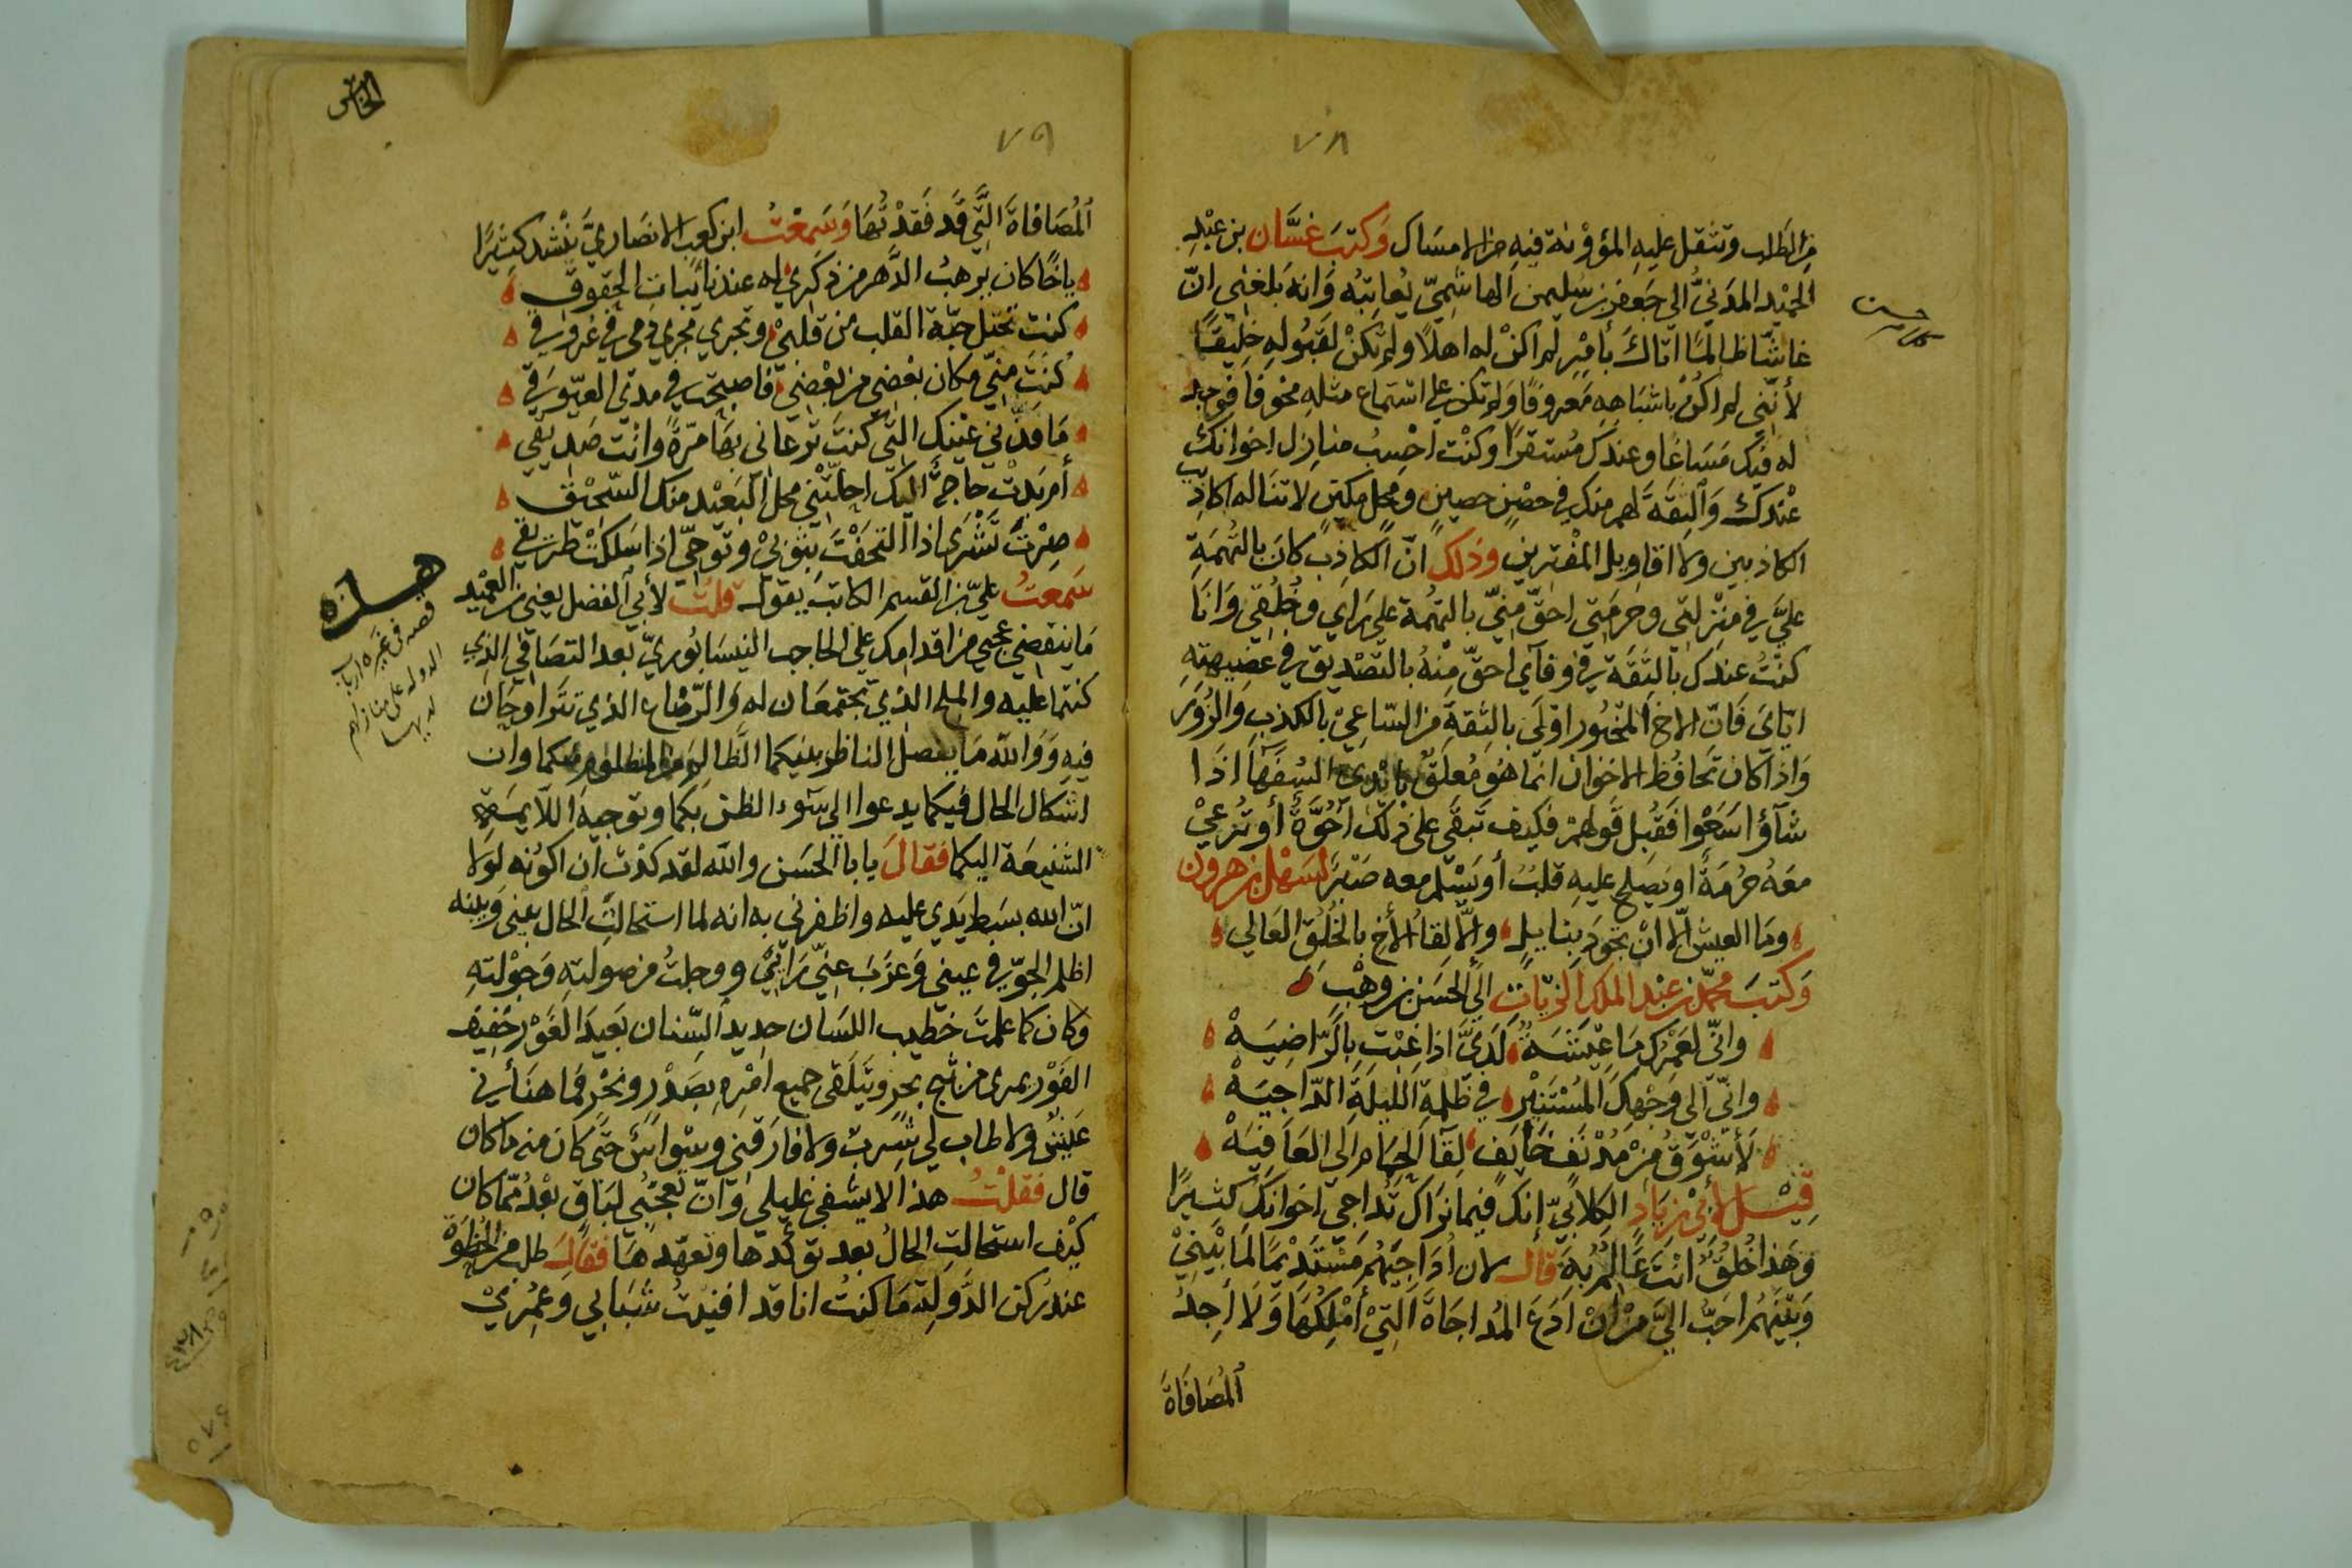 ٧٨
من الطلب وتثقل عليه المؤونة فيه من الامساك وَكتبَ غسَّان بن عبْدِ
الحميْد المدَنيُّ الى جَعفر بن سليمن الهاشميّ يُعاتِبُه وَانه بَلغنِي انّ
غاشّا ظالمًا اتاكَ بأمْرٍ لم اكنْ له اهلًا ولم تكنْ لقبُولهِ خليقًا
لأنّنى لم اكُنْ باشبَاهِهِ مَعروفًا وَلم تكن على استماع مثلهِ مخوفا فوجد
له فيك مَسَاغًا وعندك مُستقرّا وكنْت احْسِبُ منازل اخوانك
عْندكَ وَالثقةَ لهم منك في حصْنٍ حصينٍ ومحل مكين لا تناله اكاذيب
الكاذبين ولا اقاويل المفْترين وذلك انّ الكاذبَ كانَ بالتُهمَةِ
علىَّ في منْزلتى وحرمَتي احقّ منيّ بالتهُمة على رَاي وخُلقي وَانَا
كنْتُ عندك بالثقَة في وفآي احقّ مِنْهُ بالتصْديق في عضِيهتِه
ايّايَ فَانّ الاخ المخبُور اوْلَى بالثِقةِ من السّاعِيْ بالكذبِ وَالزُورِ
وَاذا كان تَحافُظ الاخوان انما هُو مُعلَقٌ بأيْدِى السُفَهَآ اذَا
شآؤا سَعَوا فَقُبل قَولهمْ فكيف تَبقَى على ذلكَ اخُوَّةٌ أو تُرعيْ
معَهُ حُرْمَةٌ او يَصلح عليهِ قلبٌ أو يَسْلم معه صَدْرٌ لسَهْل بن هرون
ومَا العيش الّا انْ تجُودَ بِنايلٍ والّا لِقاُ الأخ بالخُلُقِ العَالي
وَكتبَ محمّد بن عبْد الملك الزيّاتِ الَى الحسَن بن وهْب
وانّى لعَمْرك مَا عِيْشَةٌ لَدَيَّ اذا غِبْت بالرّاضِيَهْ
وانّى الى وَجْهِكَ المُسْتَنِيْرِ في ظُلْمةِ الليلَةِ الدّاجِيَهْ
لَأَشْوَقُ مِنْ مُدْنَفٍ خَايفٍ لِقآ الحِمَامِ الَى العَافِيَهْ
قِيْـلَ لأبيْ زيَادٍ الكِلابيّ إنكَ فيما نرَاك تُداجيْ اخوَانكَ كثِيرًا
وَهَذا خُلقٌ انْتَ عَالمٌ بهَ قالَ لان اُدَاجيَهُم مسْتَدِيْمًا لمَا بَيْنِيْ
وَبَيْنَهُم احَبّ اليَّ مِنْ انْ ادَعَ المُداجَاةَ التِيْ أمْلِكُهَا وَلَا أجِدُ
المُصَافَاةَ
٧٩
المُصَافاةَ التَّي قَد فَقدْتُهَا وَسَمِعْتُ ابن كعب الانصَاريَّ ينْشد كثِيرًا
ياخًا كان يرهبُ الدَّهر من ذكري له عند نائبات الحقوقِ
كنت تحتل حبّة القلب من قلبيْ وتجري مجرى دمى في عُروقي
كُنتَ مِنّي مكان بعْضي من بعْضِي فاصبحت في مدَى العيّوقِ
مَا قذَّى عيْنك التّي كنتَ ترعانى بهَا مرّةً وانْت صَديقي
أم بَدتْ حاجةٌ اليكَ احلّتْني محل البَعيْد منك السّحيْق
صِرْتَ تَشْرَى اذا التحفْتَ بثوبيْ وتوحّي اذا سَلكتْ طَريقي
سَمعتُ عليّ بن القسم الكاتبَ يقول قلت لأبي الفضل يعني بن العميْد
مَا ينقضي عجبي من اقدامك على الحاجب النيسَابُوريّ بعد التصَافي الذي
كنتما عليه والملح الذي تجتمعَان له وَالرّضاع الذي تتَراوحَان
فيهِ وَوَاللّه مَا يفصل الناظر بينكما الظَّالِمَ من المظلوم منكما وان
اشكال الحال فيكما يدعوا الى سَوء الظن بكما وتوجيه اللايمَةِ
الشنيعَة اليكما فقالَ يابا الحسَن والله لقد كدْتُ ان اكوُنه لَولا
انّ الله بسَط يَدي عليه واظفرنى به انه لما استحالتِ الحال بينى وَبينه
اظلم الجوّ في عيني وَعزَبَ عنيّ رَائيْ ووجلتُ من صولتهِ وَجوْلتهِ
وكان كما علمتَ خطيب اللسَان حديد السّنان بَعيدَ الغَوْر خفِيف
الفَوْر يمرى من ثبج بحرٍ ويَتلقى جميع امْرِهِ بصَدْرٍ ونحْرٍ فمَا هنَأنى
عَيْشٌ ولا طاب لي شُربٌ ولا فارَقني وسْواسٌ حتَّى كانَ منه ما كان
قال فقلتُ هذا لا يشْفي غليلي وَانّ تعجّبي لبَاقٍ بَعْدُ ممّا كان
كيْف استحالتِ الحالُ بعد توكّدها وتعهّدهَا فقالَ طلب من الحُظوَةِ
عند ركن الدَّولةِ مَا كنتُ انا قد افنيتُ شَبَابي وعُمُريْ
قصه في غيره ارباب
الدوله على منازلهم